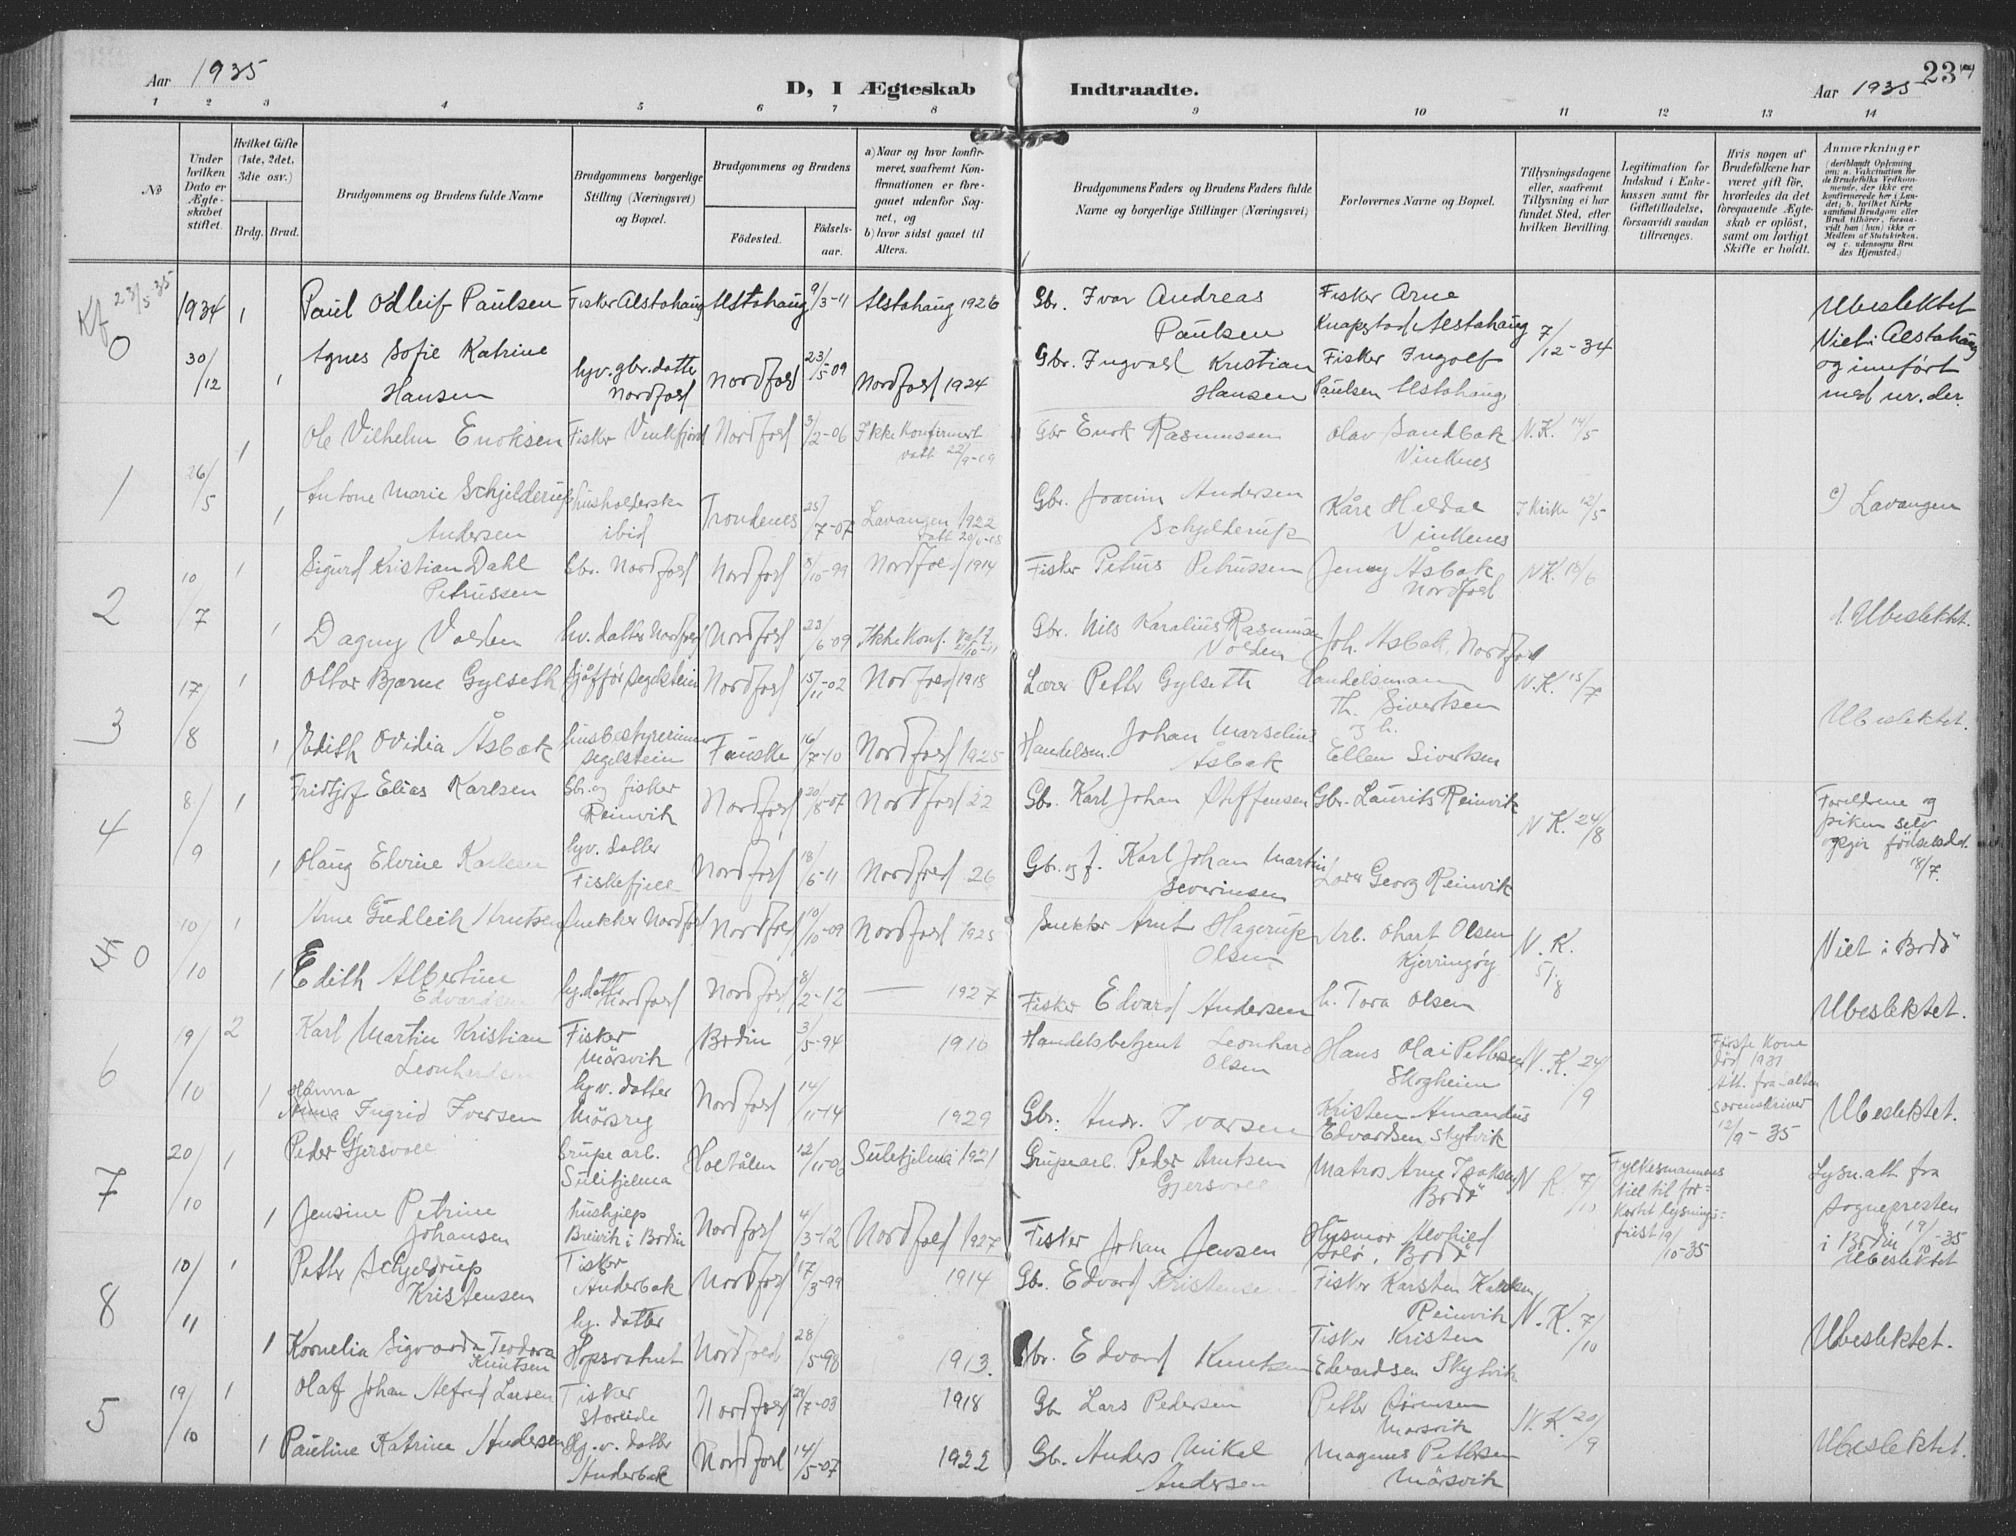 Aar 1935
D, I Ægteskab Indtraadte.
Aar 1935
23
1 2 3 4 5 6 7 8 9 10 11 12 13 14
No
Under hvilken Dato er Ægteskabet stiftet.
Hvilket Gifte (1ste, 2det, 3die osv.)
Brdg. Brud.
Brudgommens og Brudens fulde Navne
Brudgommens borgerlige Stilling (Næringsvei) og Bopæl.
Brudgommens og Brudens
Fødested.
Fødselsaar.
a) Naar og hvor konfirmeret, saafremt Konfirmationen er foregaaet udenfor Sognet, og
b) hvor sidst gaaet til Alters.
Brudgommens Faders og Brudens Faders fulde Navne og borgerlige Stillinger (Næringsvei)
Forlovernes Navne og Bopæl.
Tillysningsdagene eller, saafremt Tillysning ei har fundet Sted, efter hvilken Bevilling.
Legitimation for Indskud i Enkekassen samt for Giftetilladelse, forsaavidt saadan tiltrænges.
Hvis nogen af Brudefolkene har været gift før, hvorledes da det foregaaende Ægteskab er opløst, samt om lovligt Skifte er holdt.
Anmærkninger
(deriblandt Oplysning om: a. Vakcination for de Brudefolks Vedkommende, der ikke ere konfirmerede her i Landet; b. hvilket Kirkesamfund Brudgom eller Brud tilhører, forsaavidt han (hun) ikke er Medlem af Statskirken, og c. udensogns Brudes Hjemsted.)
Kf 23/5-35
0 1934 1 Paul Odleif Paulsen Fisker Alstahaug Alstahaug 9/3-11 Alstahaug 1926 Gbr. Ivar Andreas Paulsen Fisker Arne Knapstad Alstahaug 7/12-34 Ubeslektet
30/12 1 Agnes Sofie Katrine Hansen hjv. gbr. datter Nordfold Nordfold 23/5-09 Nordfold 1924 Gbr. Ingvald Kristian Hansen Fisker Ingolf Paulsen Alstahaug Viet i Alstahaug og innført med nr. der.
1 26/5 1 Ole Vilhelm Enoksen Fisker Vinkfjord Nordfold 3/2-06 Ikke Konfirmert Gbr Enok Rasmussen Olav Sandbak Vinknes N.K. 14/5
1 Antone Marie Schjelderup Andersen husholderske ibid Trondenes 25/7-07 Lavangen 1922 Gbr. Joacim Andersen Schjelderup Kåre Heldal Vinkenes I Kirke 12/5 c) Lavangen
2 10/7 1 Sigurd Kristian Dahl Petrussen Gbr. Nordfold Nordfold 8/10-99 Nordfold 1914 Fisker Petrus Petrussen Jenny Åsbak Nordfold N.K. 18/6
1 Dagny Volden hv. datter Nordfold Nordfold 23/6-09 Ikke Konf. Gbr. Nils Karolius Rasmussen Volden Joh. Åsbak, Nordfold Ubeslektet.
3 17/8 1 Ottar Bjarne Gylseth Sjåffør Segelstein Nordfold 15/11-02 Nordfold 1918 Lærer Petter Gylseth Handelsmann Th. Sivertsen N.K. 15/7
1 Edith Ovidia Åsbak husbestyrerinne Segelstein Fauske 16/7-10 Nordfold 1925 Handelsm. Johan Marselius Åsbak og h. Ellen Sivertsen Ubeslektet.
4 8/9 1 Fridtjof Elias Karlsen Gbr. og fisker Reinvik Nordfold 20/8-07 Nordfold 22 Gbr. Karl Johan Steffensen Gbr. Laurits Reinvik N.K. 24/8 Foreldrene og piken selv
1 Olaug Elvine Karlsen hjv. datter Fiskefjell Nordfold 18/6-11 Nordfold 26 Gbr. og f. Karl Johan Martin Severinsen Lærer Georg Reinvik 18/7.
0 10/10 1 Arne Gudleik Arntsen Snekker Nordfold Nordfold 10/10-09 Nordfold 1925 Snekker Arnt Hagerup Olsen Arb. Ohart Olsen Kjerringøy N.K. 5/8 Viet i Bodø
1 Edith Albertine Edvardsen hj. datter Nordfold Nordfold 8/2-12 — 1927 Fisker Edvard Andersen h. Tora Olsen Ubeslektet.
6 19/10 2 Karl Martin Kristian Leonhardsen Fisker Mørsvik Bodin 3/5-94 1910 Handelsbetjent Leonhard Olsen Hans Olai Pettersen Skogheim N.K. 24/9 Første Kone død 1931 Att. fra Salten sorenskriver 12/9-35
1 Hanna Ingrid Iversen hjv. datter Mørsry Nordfold 14/11-14 1929 Gbr. Andr. Ivarsen Kristen Amandus Edvardsen Skytvik Ubeslektet.
7 20/10 1 Peder Gjersvoll Grupe arb. Sulitjelma Holtålen 12/11-06 Sulitjelma 1921 Grupearb. Peder Arntsen Gjersvoll Matros Arne Isaksen Bodø N.K. 7/10 Fylkesmannens till. til forkortet lysningsfrist 19/10-35 Lysn.att fra sognepresten
1 Jensine Petrine Johansen hushjelp Breivik i Bodin Nordfold 4/3-12 Nordfold 1927 Fisker Johan Jensen Husmor Solø, Bodø i Bodin 19/10-35 Ubeslektet
8 10/11 1 Petter Schjeldrup Kristensen Fisker Anderbak Nordfold 17/3-99 1914 Gbr. Edvard Kristensen Fisker Karsten Karlsen Reinvik N.K. 7/10
1 Kornelia Sigvarda Teodora Knutsen hj. datter Hopsvatnet Nordfold 28/5-98 1913. Gbr. Edvard Knutsen Fisker Kristen Edvardsen Skytvik Ubeslektet.
5 19/10 1 Olaf Johan Alfred Larsen Fisker Storeide Nordfold 29/7-03 1918 Gb. Lars Pedersen Petter Sørensen Mørsvik N.K. 20/9
1 Pauline Katrine Andersen Hj. v. datter Anderbak Nordfold 14/5-07 1922 Gb. Anders Mikal Andersen Magnus Pettersen Mørsvik Ubeslektet.